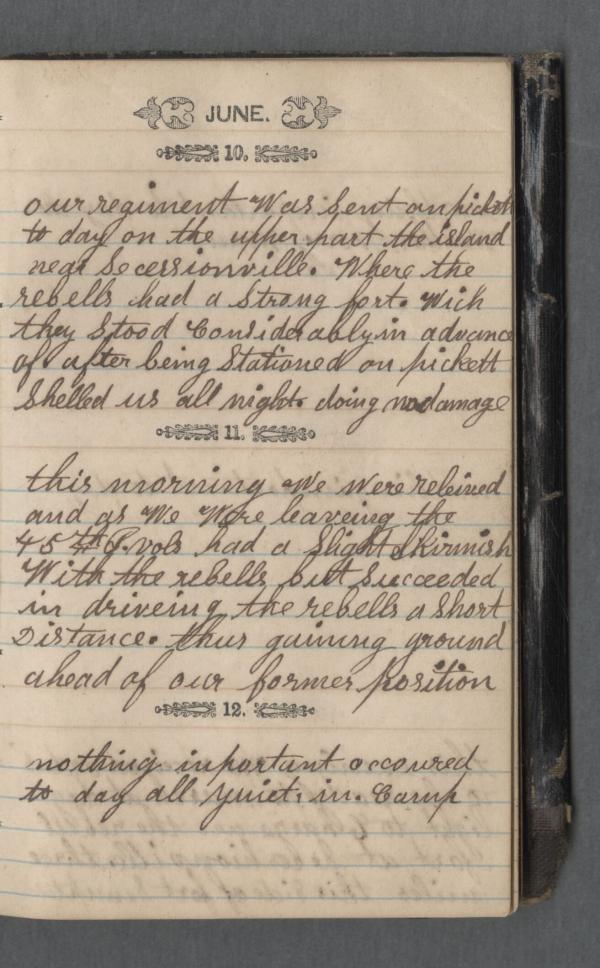 JUNE.
10.
our regiment Was Sent on pickett
to day on the upper part the island
near Secessionville. Where the
rebells had a Strong fort. Wich
they Stood Considerably in advance
of. after being Stationed on pickett
Shelled us all night. doing no damage
11.
this morning We Were releived
and as We Were leaveing the
45th P. vols had a Slight Skirmish
With the rebells but Succeeded
in driveing the rebells a Short
Distance. thus gaining ground
ahead of our former position
12.
nothing inportant occoured
to day all quiet. in. Camp